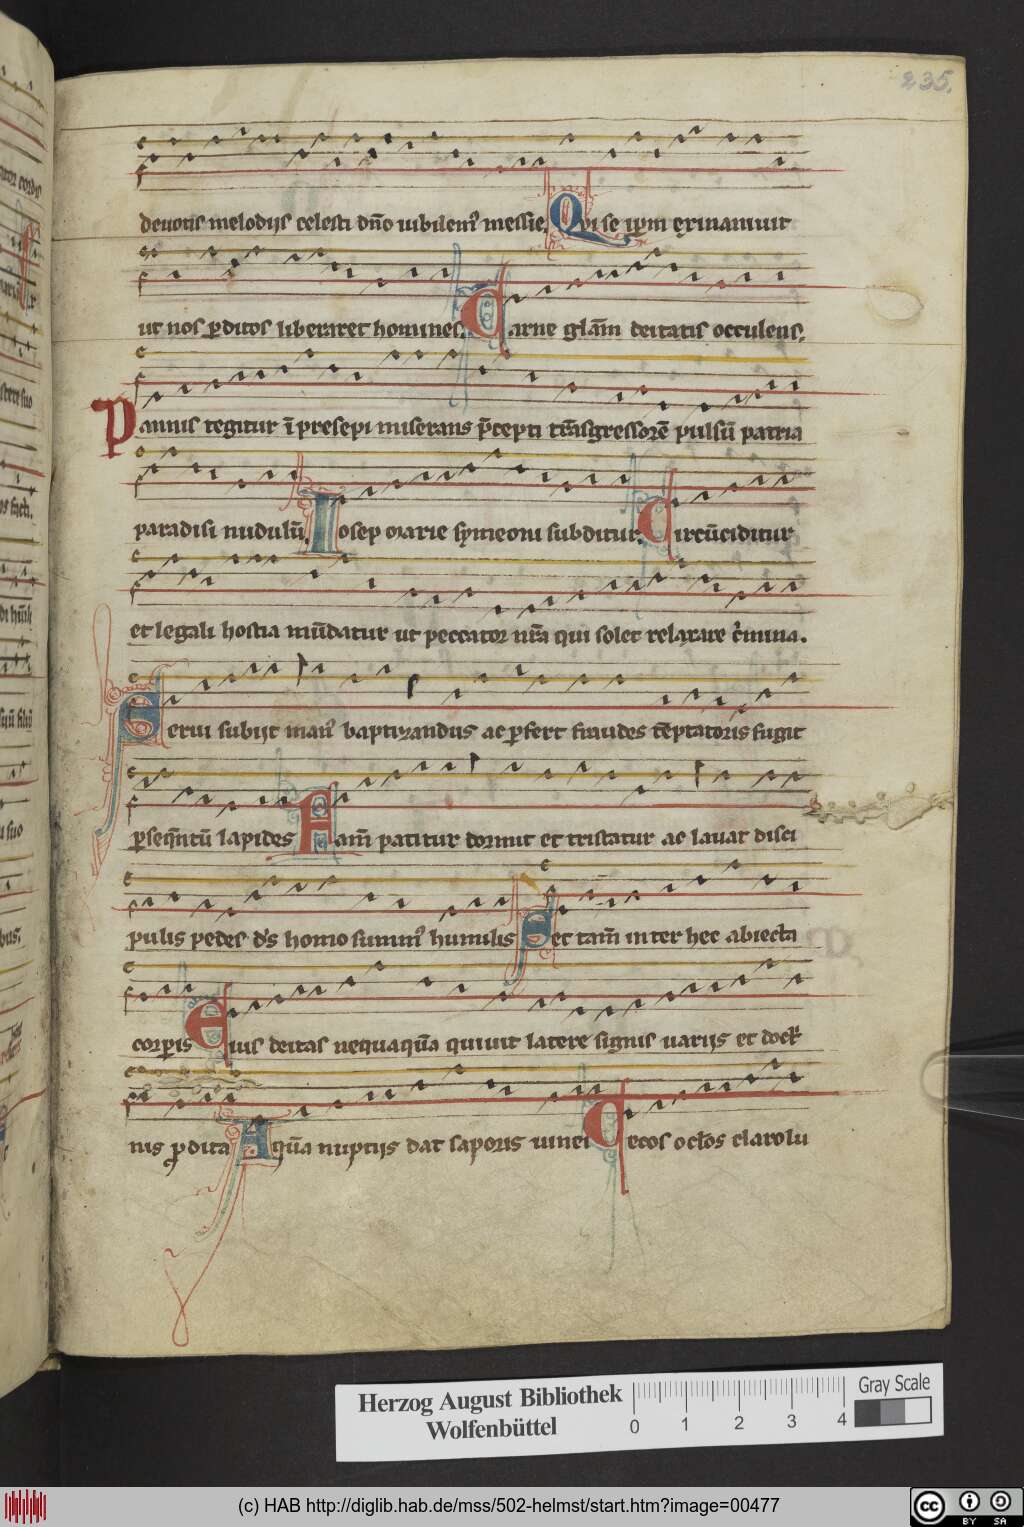 235.
deuotis melodijs celesti dn̄o iubilem᷒ messie. Qui se ip̄m exinaniuit
ut nos ꝑditos liberaret homines. Carne gl̄am deitatis occulens.
Pannis tegitur ī presepi miserans p̄cepti trāsgressorē pulsū patria
paradisi nudulū. Iosep marie symeoni subditur. Circūciditur
et legali hostia mūdatur ut peccator nr̄a qui solet relaxare c̓mina.
Serui subijt man᷒ baptizandus ac ꝑfert fraudes tēptatoris fugit
ꝑseq̄ntū lapides Fam̄ patitur dormit et tristatur ac lauat disci
pulis pedes ds̄ homo summ᷒ humilis Set tam̄ inter hec abiecta
corꝑis Eius deitas nequaquā quiuit latere signis uarijs et doct̓
nis ꝓdita Aquā nuptijs dat saporis uinei Cecos oc̄los claro lu
Herzog August Bibliothek
Wolfenbüttel
0 1 2 3 4
Gray Scale
(c) HAB http://diglib.hab.de/mss/502-helmst/start.htm?image=00477
cc BY SA